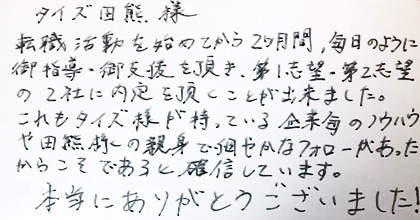 タイズ田熊様
転職活動を始めてから2ヶ月間,毎日のように
御指導・御支援を頂き、第1志望・第2志望
の2社に内定を頂くことが出来ました。
これもタイズ様が持っている企業毎のノウハウ
や田熊様の親身で細やかなフォローがあった
からこそであると確信しています。
本当にありがとうございました!